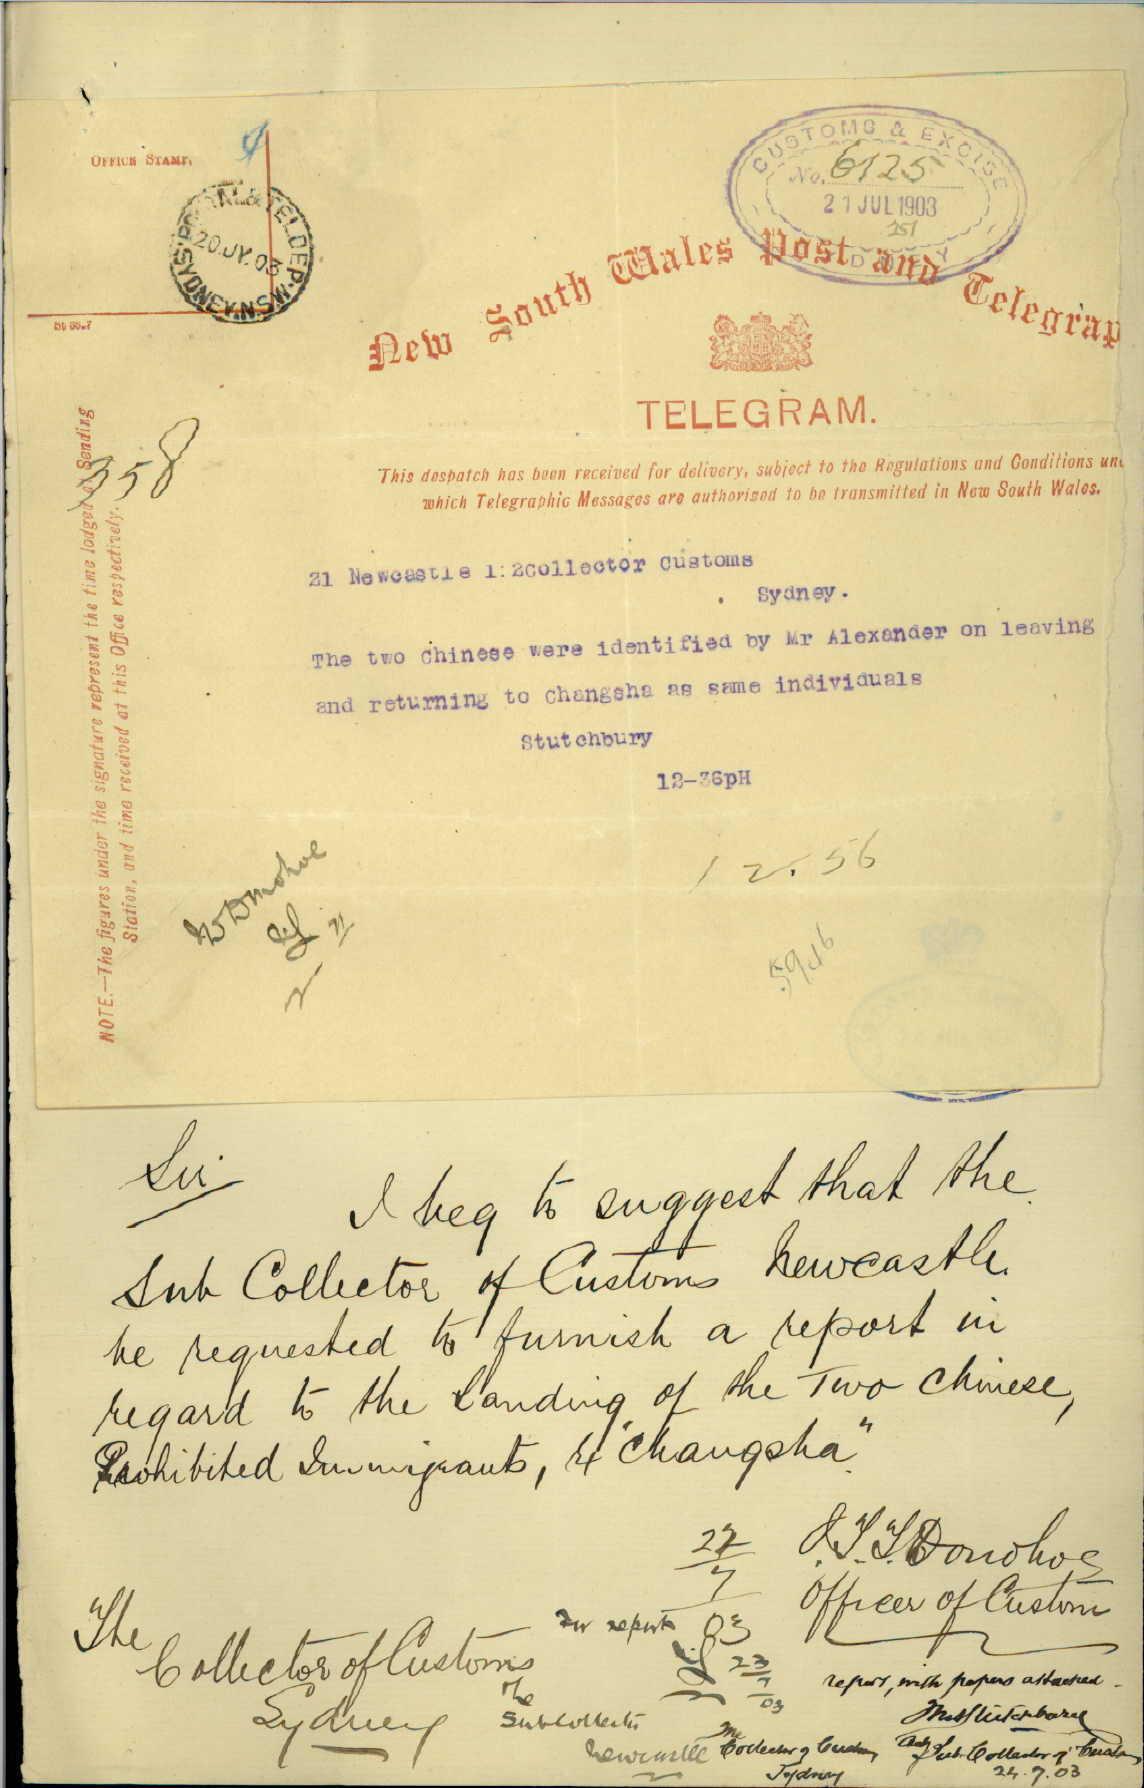 OFFICE STAMP.
POSTAL & TEL DEP.
20.JY.03
SYDNEY N.S.W
CUSTOMS & EXCISE
No. 6125
21 JUL 1903
SYDNEY
New South Wales Post and Telegrap
TELEGRAM.
This despatch has been received for delivery, subject to the Regulations and Conditions un
which Telegraphic Messages are authorised to be transmitted in New South Wales.
358
NOTE.—The figures under the signature represent the time lodged at Sending
Station, and time received at this Office respectively.
21 Newcastle 1:2Collector Customs
Sydney.
The two Chinese were identified by Mr Alexander on leaving
and returning to Changsha as same individuals
Stutchbury
12-36pH
12.56
Donohoe
21
5946
Sir
I beg to suggest that the
Sub Collector of Customs Newcastle
be requested to furnish a report in
regard to the Landing of the Two Chinese,
Prohibited Immigrants, "Changsha"
22
7
03
J.T.T. Donohoe
Officer of Customs
The
Collector of Customs
Sydney
For report
23
7
03
The
Sub Collector
Newcastle
report, with papers attached
Stutchbury
Sub-Collector of Customs
24.7.03
The
Collector of Customs
Sydney